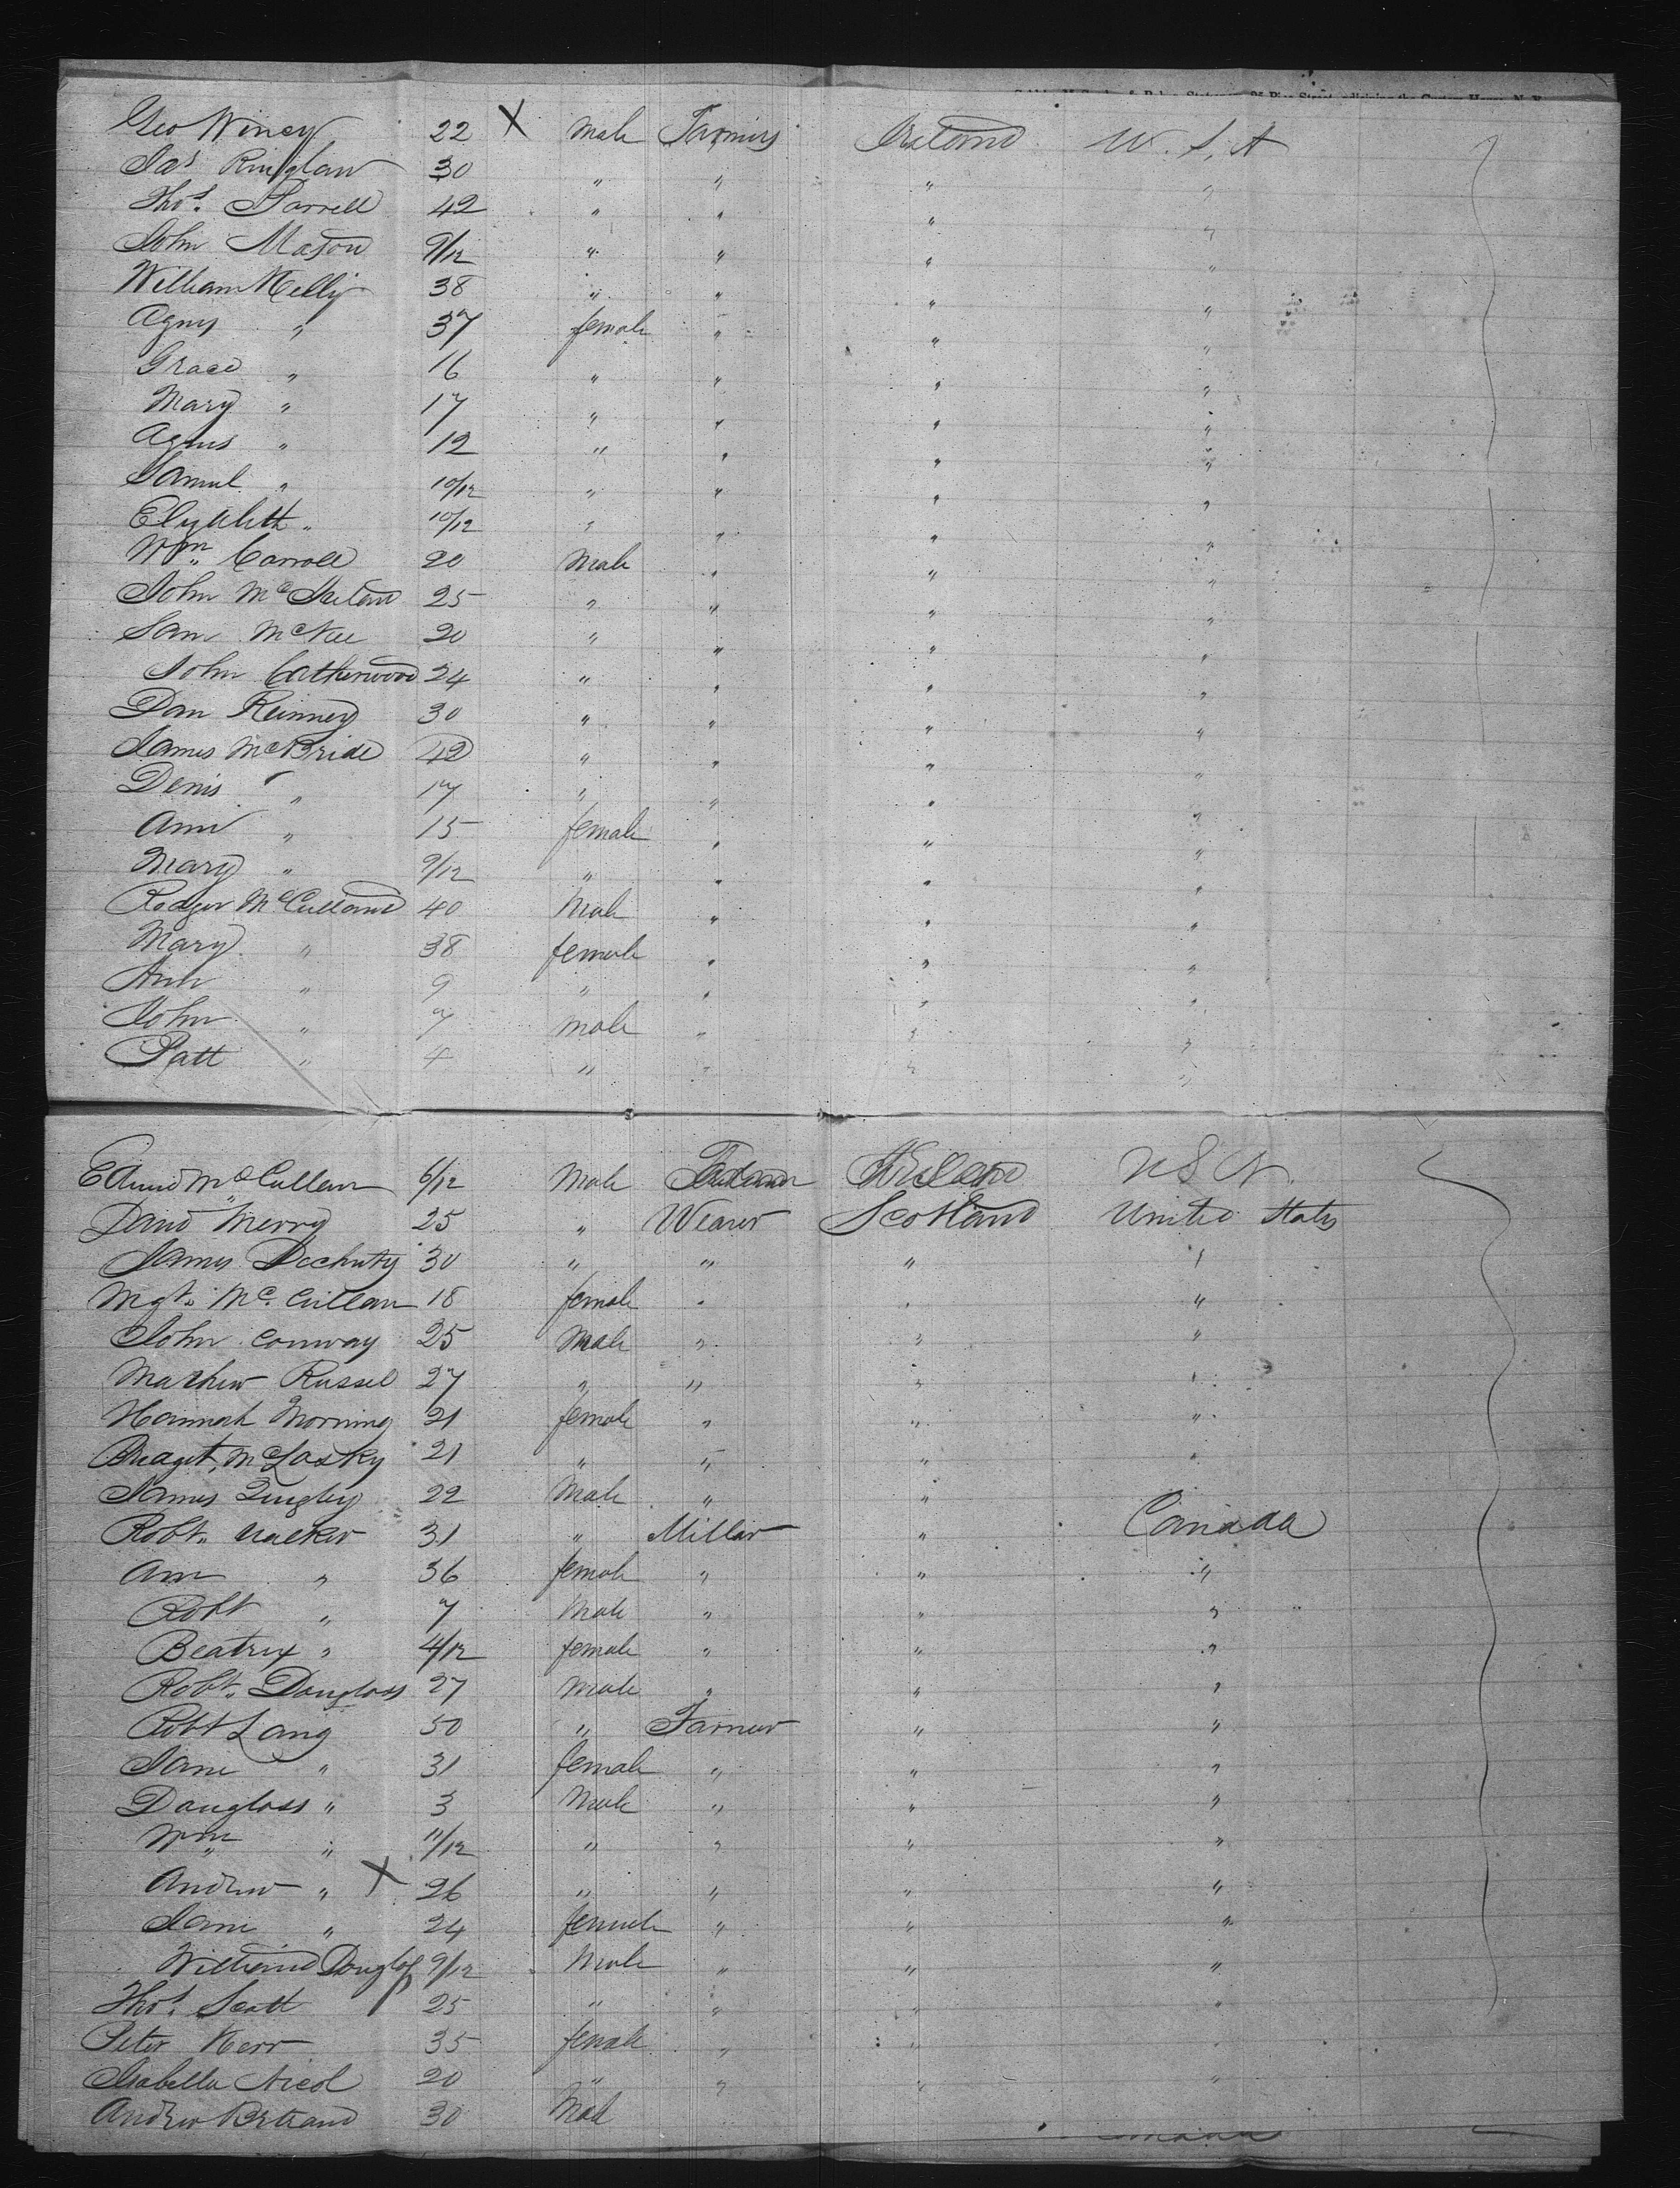 Geo Winey 22 X Male Farmers Ireland U. S. A
Jas Ringlaw 30 " " " "
Thos. Farrell 42 " " " "
John Mason 9/12 " " " "
William Kelly 38 " " " "
Agnes " 37 female " " "
Grace " 16 " " " "
Mary " 17 " " " "
Agnes " 12 " " " "
Samul " 10/12 " " " "
Elyabeth " 10/12 " " " "
Wm. Carroll 20 Male " " "
John Mc 25 " " " "
Sam McKee 20 " " " "
John Catherwood 24 " " " "
Dan Kinney 30 " " " "
James McBride 42 " " " "
Denis " 17 " " " "
Ann " 15 female " " "
Mary " 9/12 " " " "
Rodger McCulland 40 Male " " "
Mary " 38 female " " "
Ann " 9 " " " "
John " 7 male " " "
Patt " 4 " " " "
Edmd McCullan 6/12 Male Ireland U S A
David Merry 25 " Weaver Scotland United States
James Docherty 30 " " " "
Mgt. Mc. Cullan 18 female " " "
John Conway 25 Male " " "
Mathew Russel 27 " " " "
Hannah Morning 21 female " " "
Bridget McLasky 21 " " " "
James Quigley 22 Male " " "
Robt. Walker 31 " Millar " Canada
Ann " 36 female " " "
Robt " 7 Male " " "
Beatrix " 4/12 female " " "
Robt. Douglass 27 Male " " "
Robt Lang 50 " Farmer " "
Jane " 31 female " " "
Douglass " 3 Male " " "
Wm " 11/12 " " " "
Andrew " X 26 " " " "
Jane " 24 female " " "
William Douglas 9/12 Male " " "
Thos. Scott 25 " " " "
Peter Kerr 35 female " " "
Isabella Nicol 20 " " " "
Andrew Bertrand 30 Mal